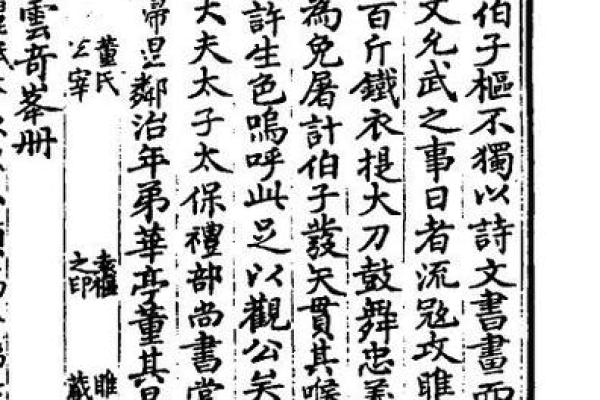 伯子樞不獨以詩文書畫而
文允武之事日者流寇攻睢
百斤鐵衣提大刀鼓舞忠義
為免屠計伯子發矢貫其喉
許生色嗚呼此足以觀公矣
大夫太子太保禮部尚書掌
鄰治年弟華亭董其昌
董氏
玄宰
袁樞
之印
睢
藏
雲奇峯冊